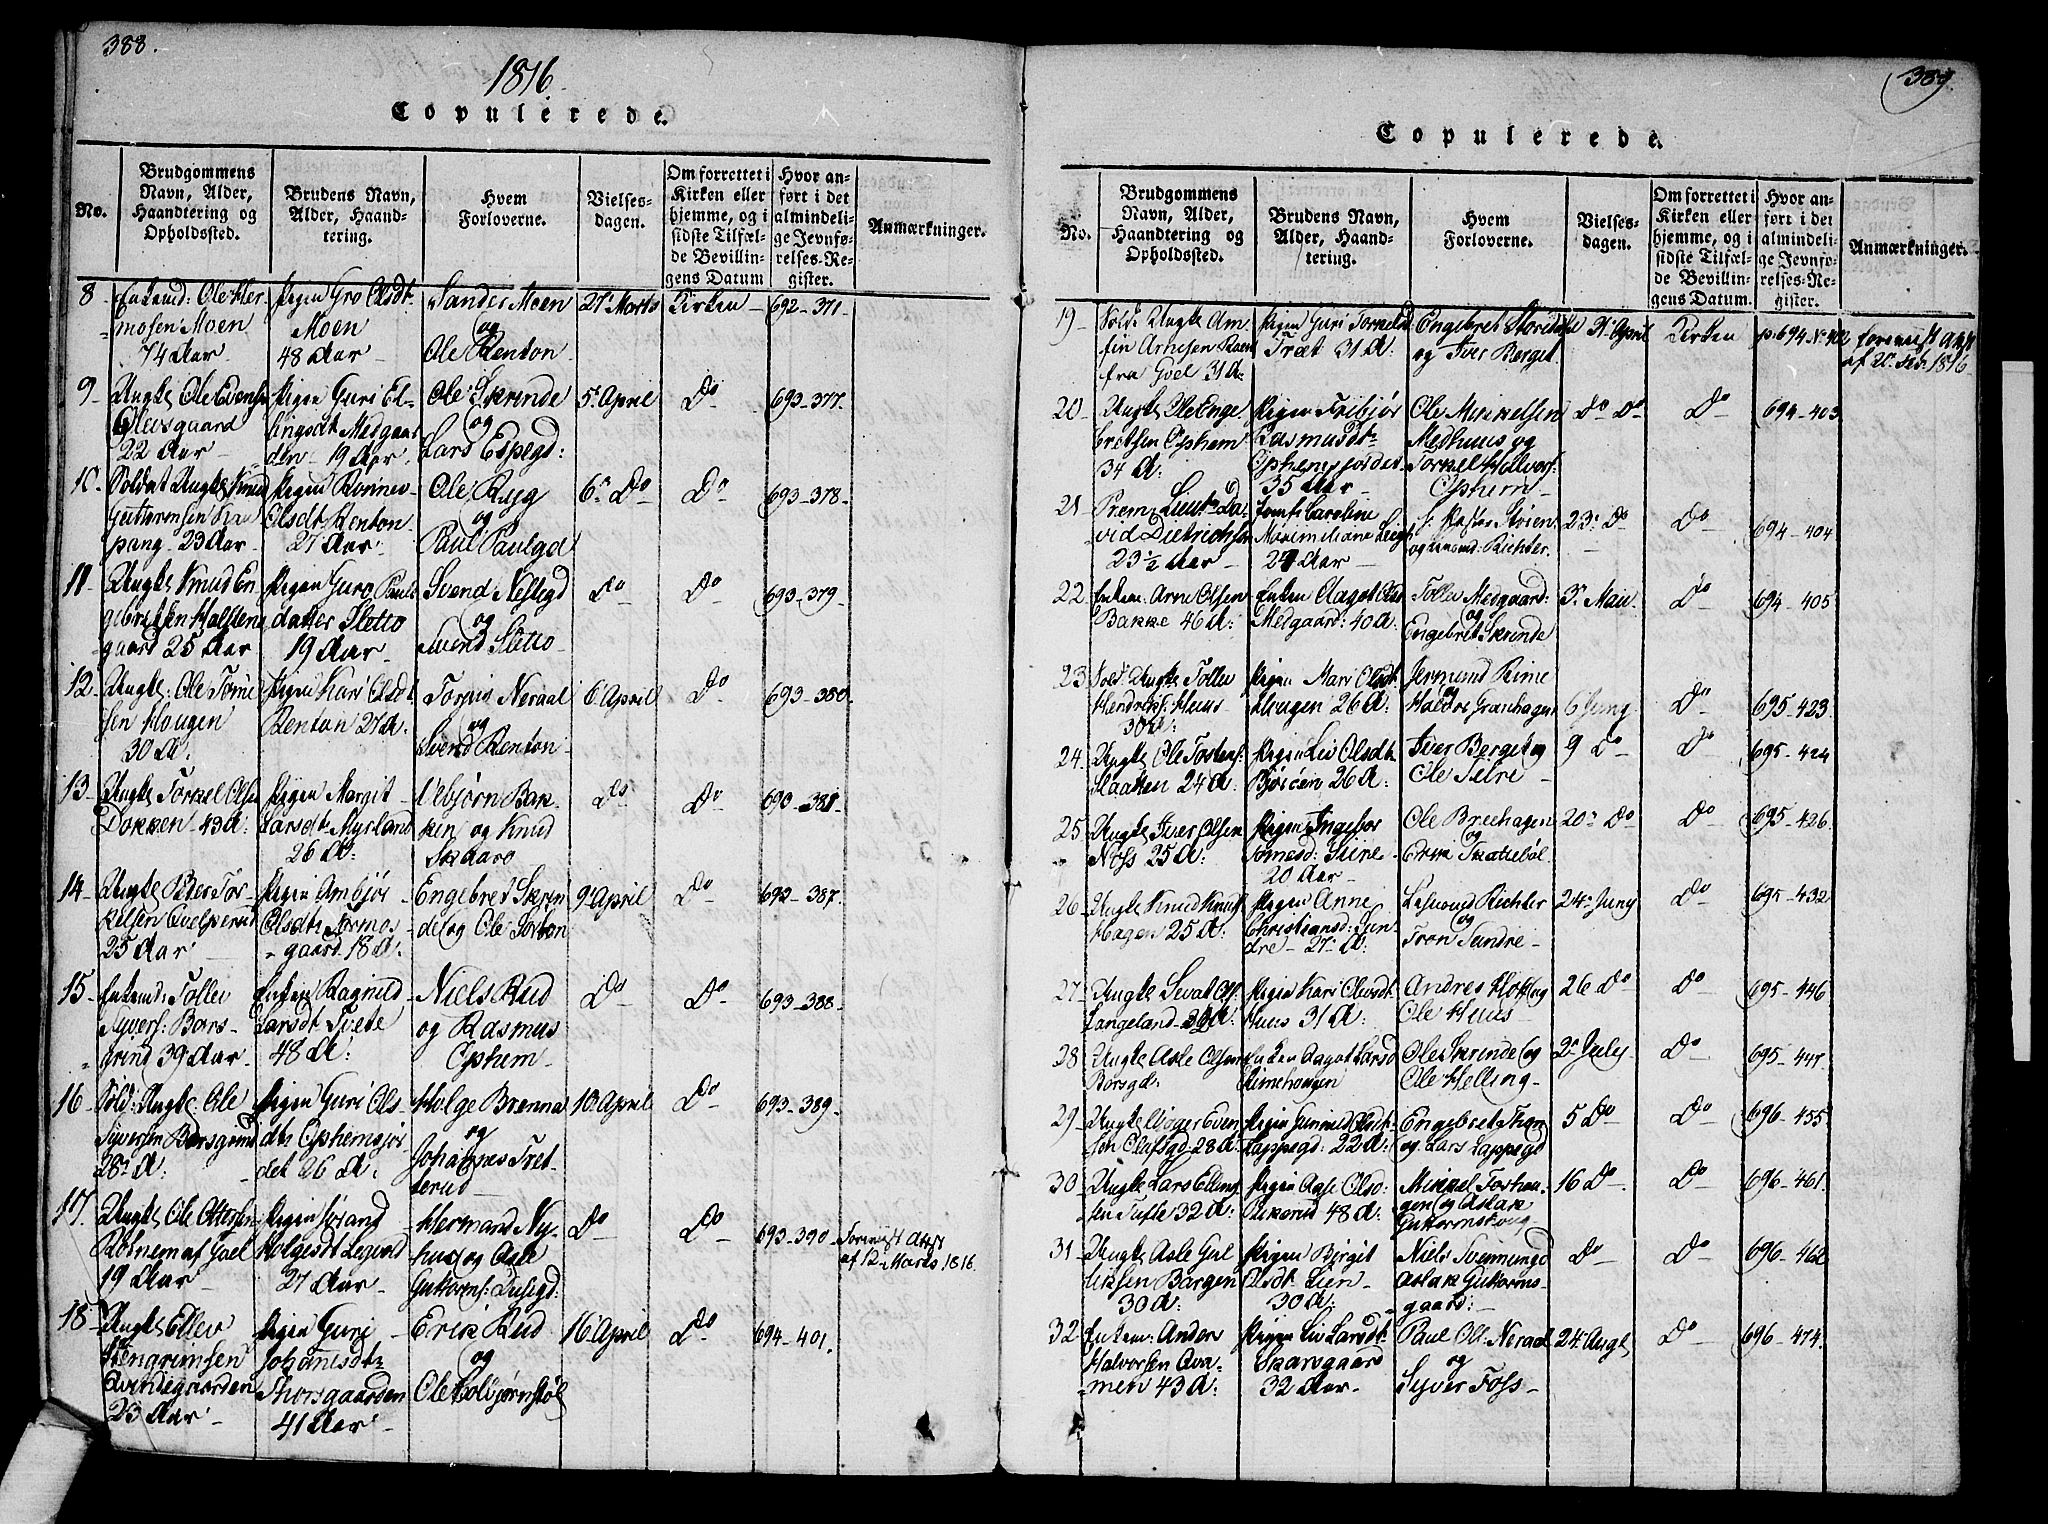 388.
1816.
Copulerede.
No.
Brudgommens Navn, Alder, Haandtering og Opholdssted.
Brudens Navn, Alder, Haandtering.
Hvem Forloverne.
Vielsesdagen.
Om forrettet i Kirken eller hjemme, og i sidste Tilfælde Bevillingens Datum
Hvor anført i det almindelige Jevnførelses-Register.
Anmærkninger.
8 Enkem: Ole Hermosen Moen 74 Aar
Pigen Gro Olsdt Moen 48 Aar
Sander Moen og Ole Renton
27 Marts
Kirken
692-371
9 Ungk: Ole Evensen 22 Aar
Pigen Guri 19 Aar
Ole Skrinde og Lars Espegd:
5 April
Do
693-377
10 Soldat Ungk: Knud Guttormsen 23 Aar
Pigen Olsdt Renton 27 Aar
Ole Ryg og Paul Paulgd
6 Do
Do
693-378
11 Ungk: Knud Engebretsen 25 Aar
Pigen Guro Pauls datter Sletto 19 Aar
Svend Nestegd og Svend Sletto
Do
Do
693-379
12 Ungk: Ole Hougen 30 A:
Pigen Kari Olsdt Renton 27 A:
Neraal og Svend Renton
6 April
Do
693-380
13 Ungk: Torkel Olsen Dokken 43 A:
Pigen Margit Larsdt Myrland 26 A:
Vebjørn Bakken og Knud Skaaro
Do
Do
693-381
14 Ungk: Peder Torkelsen 25 Aar
Pigen Ambjør Olsdt 18 A:
Engebret Skrindel og Ole
9 April
Do
692-387
15 Enkemd: Tollev Syvers: Borsgrind 39 Aar
Enken Ragnild Larsdt Tvete 48 A:
Niels Rud og Rasmus Ophem
Do
Do
693-388
16 Sold: Ungk: Ole Syversen Borsgrind 28 A:
Pigen Guri Olsdtr Ophemsjordet 26 A:
Holge Brenna og Johannes Tretterud
10 April
Do
693-389
17 Ungk: Ole Ottersen af Goel 19 Aar
Pigen Jørand Holgesdt 27 Aar
Hermand Nyhus og Guttorms:
Do
Do
693-390
Foreviist Attst af 12 Marts 1816.
18 Ungk: Ellev 23 Aar
Pigen Guri Johanesdtr Thorsgaarden 41 Aar
Erik Rud og Ole Kolbjørnsbøl
16 April
Do
694-401.
389.
Copulerede.
No.
Brudgommens Navn, Alder, Haandtering og Opholdssted.
Brudens Navn, Alder, Haandtering.
Hvem Forloverne.
Vielsesdagen.
Om forrettet i Kirken eller hjemme, og i sidste Tilfælde Bevillingens Datum.
Hvor anført i det almindelige Jevnførelses-Register.
Anmærkninger.
19 Sold: Ungk: Amfin Arnesen fra Goel 31 A:
Pigen Guri Torkelsd Træt 31 A:
Engebret og Iver Berget
April
Kirken
p: 694 No 402
foreviist Attst af 20 Feb: 1816
20 Ungk: Ole Engebretsen Ophem 34 A:
Pigen Rasmusdtr Ophemsjordet 35 Aar
Ole Mikkelsen Medhuus og Torkel Halvors: Ophem
Do Do
Do
694-403
21 Prem: Lieut: David Dietrichsen 23 ½ Aar
Jomf: Caroline Maximiliane 24 Aar
Støren og Richter.
23 Do
Do
694-404
22 Enkem: Arne Olsen Bakke 46 A:
Enken Aagot Medgaard: 40 A:
Tollev Medgaard: og Engebret Skrinde
3 Mai
Do
694-405
23 Sold: Ungk: Tollev Hendriks: Huus 30 A:
Pigen Mari Olsdt Hougen 26 A:
Jermund Rime og Haldor Granhagen
6 Juny
Do
695-423
24 Ungk: Ole Tostens: Slaatten 24 A:
Pigen Liv Olsdt 26 A:
Iver Berget og Ole
9 Do
Do
695-424
25 Ungk: Iver Olsen Noss 25 A:
Pigen Ingebor 20 Aar
Ole Breehagen og Erik Skatebøl
20 Do
Do
695-426
26 Ungk: Knud Knuds Hagen 25 A:
Pigen Anne Christiansd: Sundre 27 A:
Richter og Tron Sundre
24 Juny
Do
695-432
27 Ungk: Sevat Langeland
Pigen Kari Olsdt Huus 31 A:
Andres Hof og Ole Huus
26 Do
Do
695-446
28 Ungk: Asle Olsen Borsgd:
Enken Aagot Larsd Rimehougen
Ole Skrinde og Ole Helling
2 July
Do
695-447
29 Ungk: Even sen Olafsgd 28 A:
Pigen Gunnild Olsdt Lappegd: 22 A:
Engebret Thon og Lars Lappegd
5 Do
Do
696-455
30 Ungk: Lars Ellingsen Tufte 32 A:
Pigen Aase Olsd: 48 A:
Mikkel og Aslak
16 Do
Do
696-461.
31 Ungk: Asle Bargen 30 A:
Pigen Birgit Olsdt Lien 30 A:
Niels Svenmungd Aslak Guttormsgaard:
Do
Do
696-462
32 Enkem: Anders Halvorsen 43 A:
Pigen Liv Larsdt Skarsgaard 32 Aar
Paul Ols: Neraal og Syver Foss
24 Augt
Do
696-474.